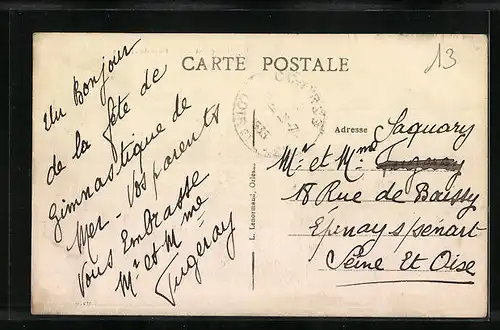 CARTE POSTALE
13
Un Bonjour
de la fête de
Gimnastique de
Mer - Vos parents
Vous Embrasse
Mr et Mme
Tugeray
L. Lenormand, Orléans
Adresse
Saquary
Mr et Mme
18 Rue de Boissy
Epinay s/senart
Seine Et Oise